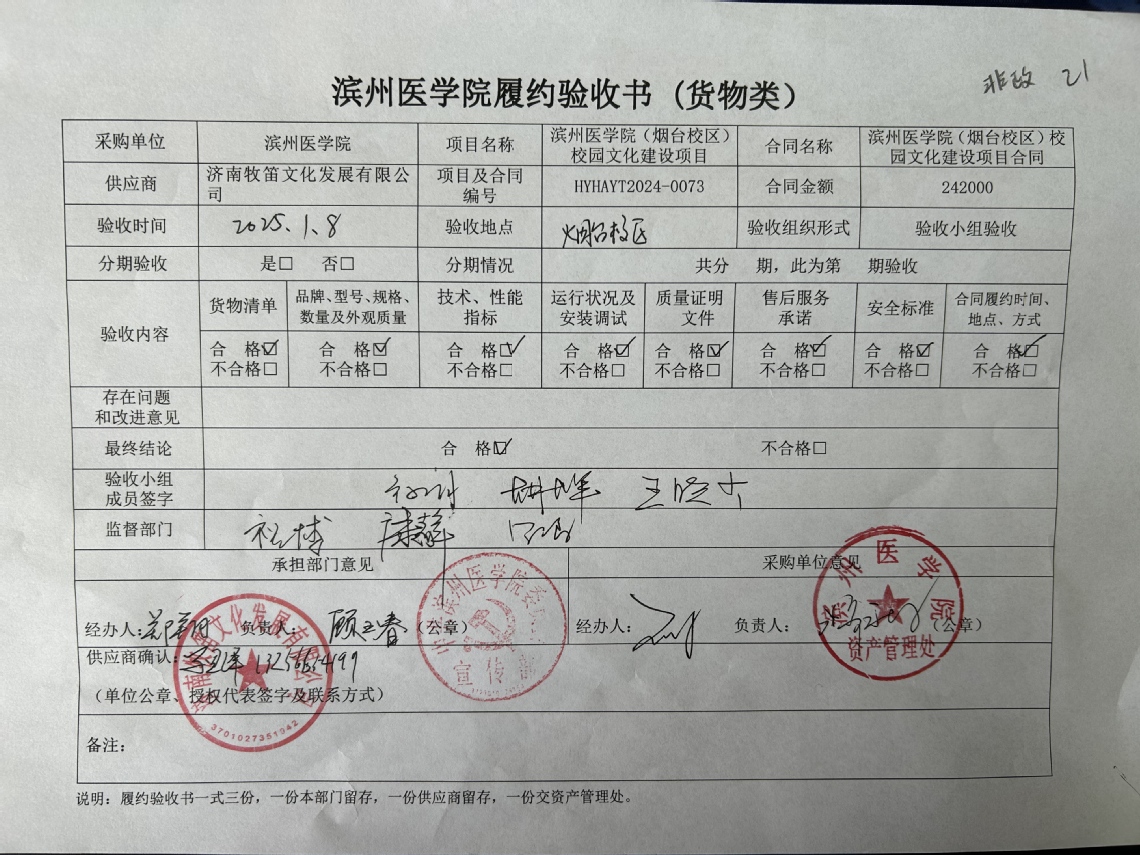 非政 21
滨州医学院履约验收书（货物类）
采购单位 滨州医学院 项目名称 滨州医学院（烟台校区）校园文化建设项目 合同名称 滨州医学院（烟台校区）校园文化建设项目合同
供应商 济南牧笛文化发展有限公司 项目及合同编号 HYHAYT2024-0073 合同金额 242000
验收时间 2025、1、8 验收地点 烟台校区 验收组织形式 验收小组验收
分期验收 是□ 否□ 分期情况 共分 期，此为第 期验收
验收内容 货物清单 品牌、型号、规格、数量及外观质量 技术、性能指标 运行状况及安装调试 质量证明文件 售后服务承诺 安全标准 合同履约时间、地点、方式
合 格☑ 合 格☑ 合 格☑ 合 格☑ 合 格☑ 合 格☑ 合 格☑ 合 格☑
不合格□ 不合格□ 不合格□ 不合格□ 不合格□ 不合格□ 不合格□ 不合格□
存在问题
和改进意见
最终结论 合 格☑ 不合格□
验收小组
成员签字
监督部门
承担部门意见 采购单位意见
经办人： 负责人：顾玉春 （公章） 经办人： 负责人： （公章）
供应商确认：
（单位公章、授权代表签字及联系方式）
3701027351942
宣传部
滨州医学院
资产管理处
备注：
说明：履约验收书一式三份，一份本部门留存，一份供应商留存，一份交资产管理处。